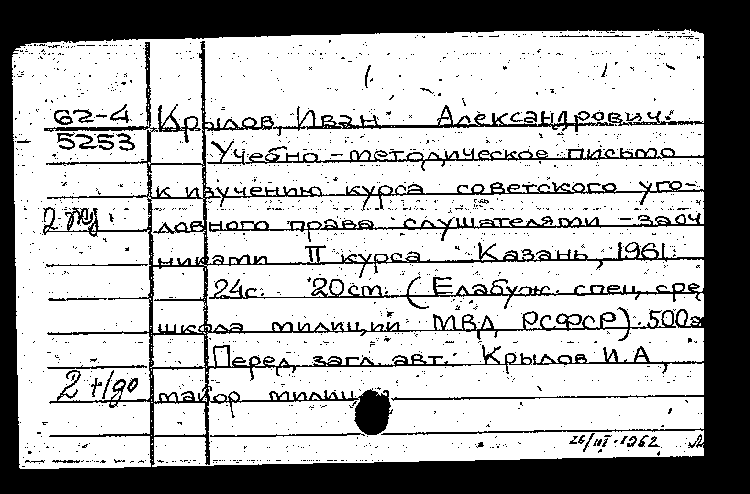 62-4
5253
Крылов, Иван Александрович.
Учебно-методическое письмо
к изучению курса советского уго-
ловного права слушателями-заоч
никами II курса. Казань, 1961.
24с. 20см. (Елабуж. спец. сре
школа милиции МВД РСФСР). 500э
Перед загл. авт.: Крылов И.А,
майор милиц
26/III-1962